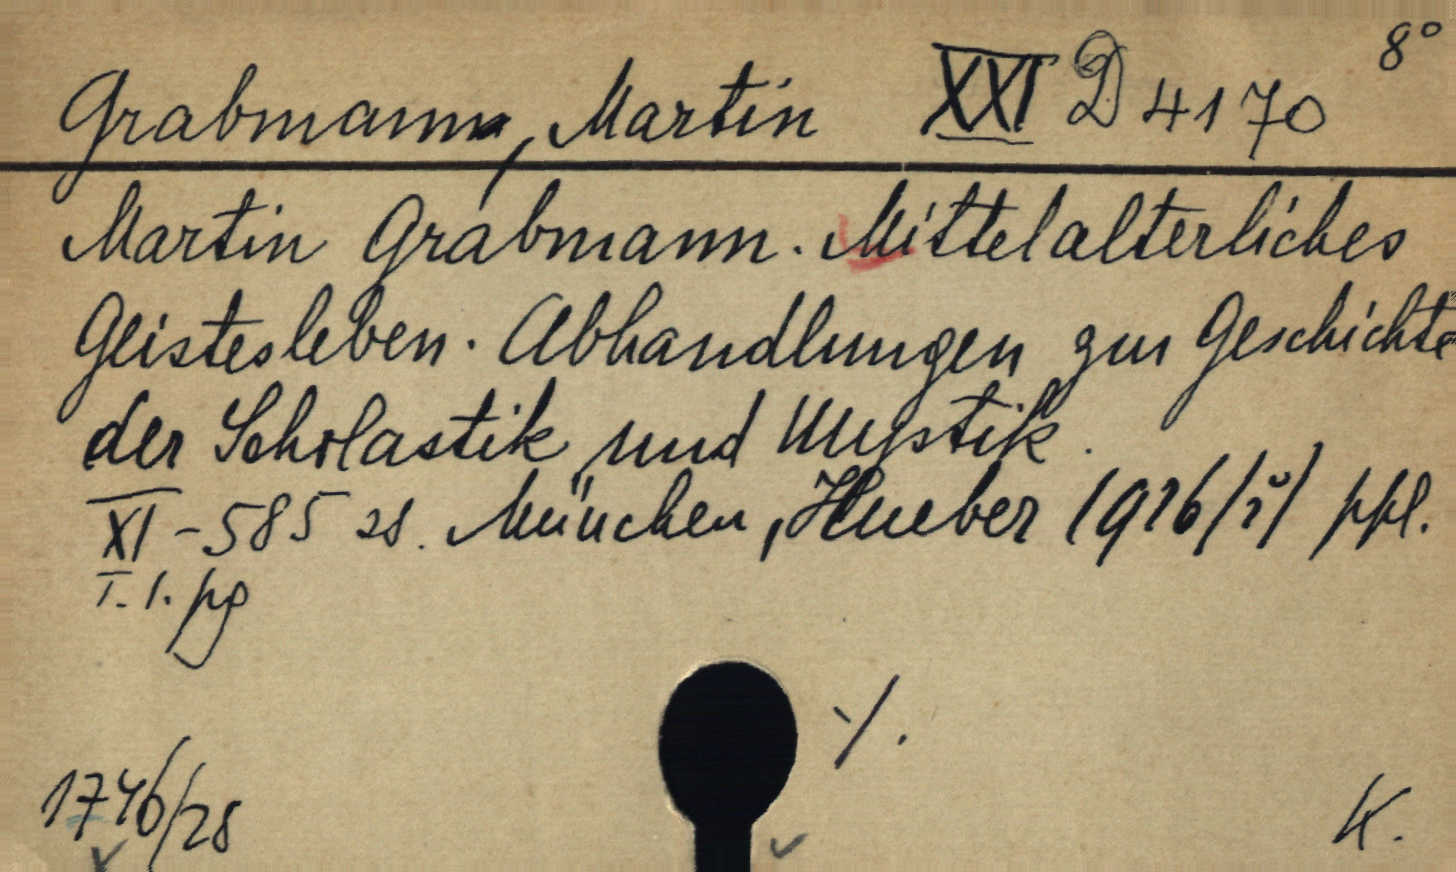 8°
Grabmann, Martin XXI D 4170
Martin Grabmann. Mittelalterliches
Geistesleben. Abhandlungen zur Geschichte
der Scholastik und Mystik.
XI-585 zs. München, Hueber 1926 ppl.
I. 1. pg
·/.
1746/28
K.